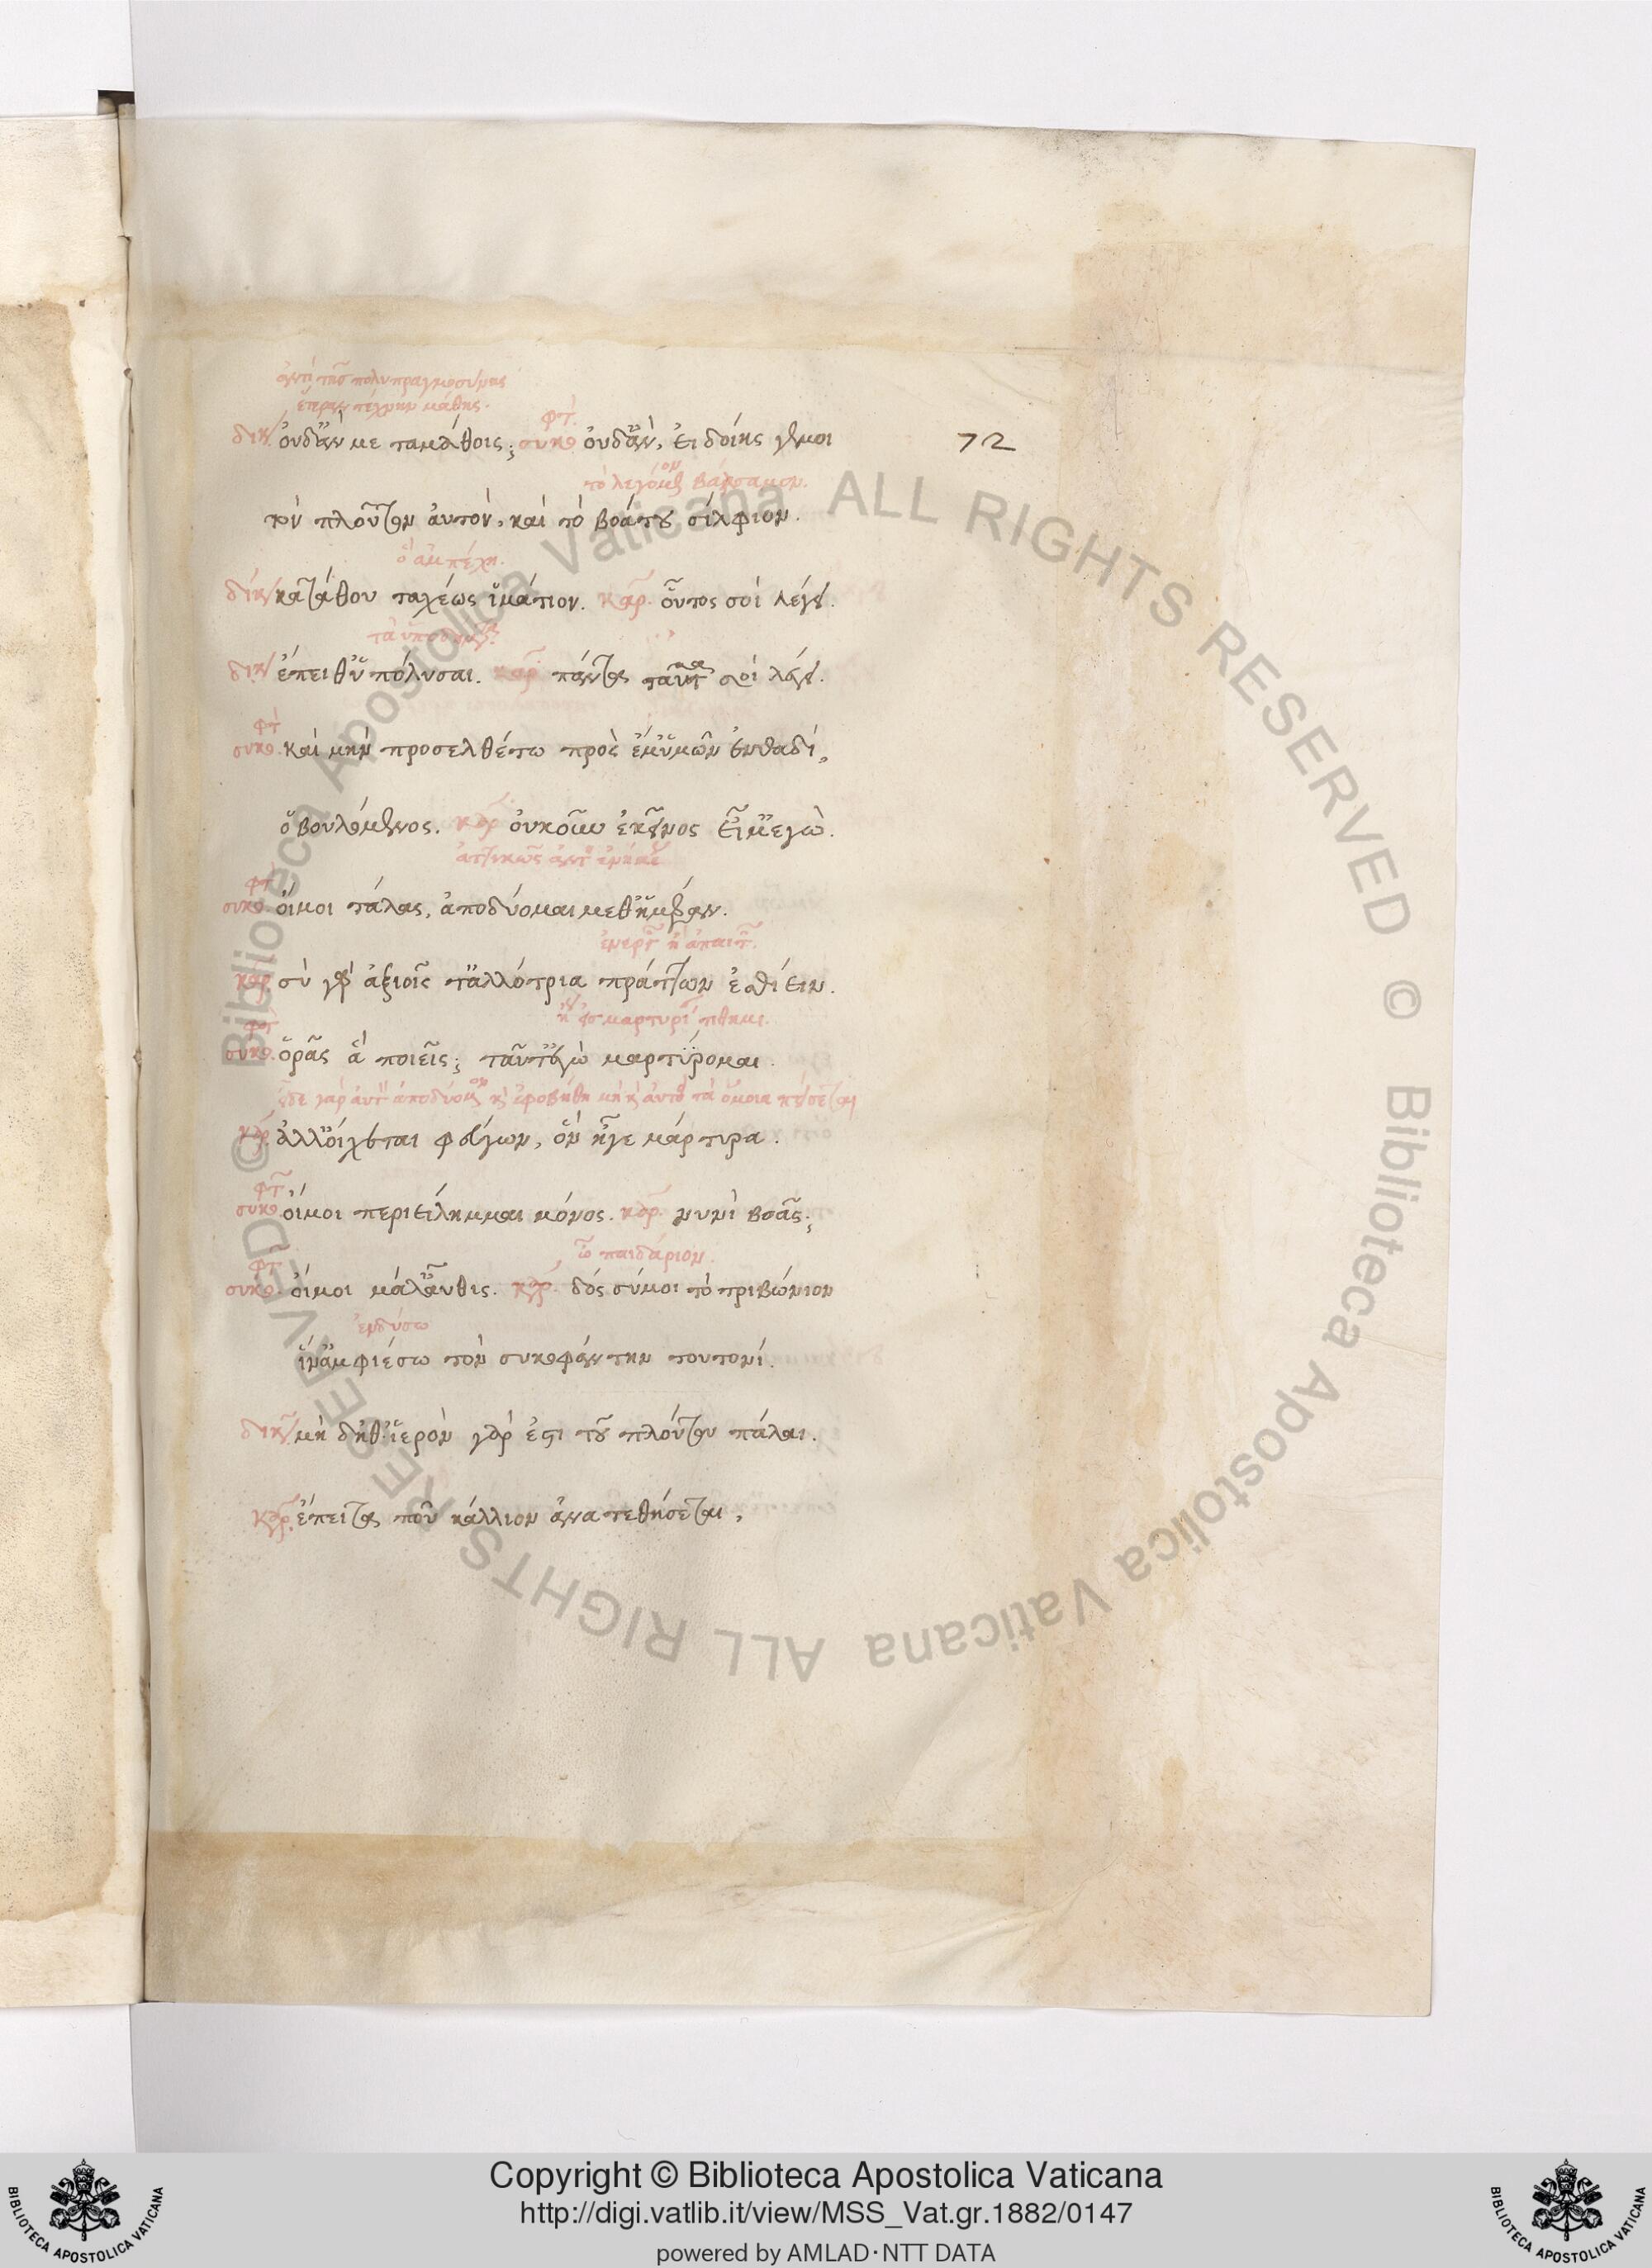 ἀντὶ τῆς πολυπραγμοσύνης
ἑτέραν τέχνην μάθης.
φτ
δικ οὐδ' ἂν μεταμάθοις; συκο οὐδ' ἂν, εἰ δοίης γέ μοι
72
τὸ λεγόμενον βάρσαμον.
τὸν πλοῦτον αὐτὸν, καὶ τὸ βάττου σίλφιον.
ὃ ἀμπέχη.
δικ κατάθου ταχέως ἱμάτιον. καρ. οὗτος σοὶ λέγει.
τὰ ὑποδήματα.
δικ ἔπειθ' ὑπόλυσαι. καρ πάντα ταῦτα σοὶ λέγει.
φτ
συκο. καὶ μὴν προσελθέτω πρὸς ἔμ' ὑμῶν ἐνθαδὶ,
ὁ βουλόμενος. καρ οὐκοῦν ἐκεῖνος εἶμ' ἐγώ.
ἀττικῶς ἀντὶ
φτ
συκο. οἴμοι τάλας, ἀποδύομαι μεθ' ἡμέραν.
καρ σὺ γὰρ ἀξιοῖς τἀλλότρια πράττων ἐσθίειν.
φτ
συκο. ὁρᾷς ἃ ποιεῖς; ταῦτ' ἐγὼ μαρτύρομαι.
εἶδε γὰρ αὐτὸν ἀποδυόμενον καὶ ἐφοβήθη μὴ καὶ αὐτὸς τὰ ὅμοια
καρ ἀλλ' οἴχεται φεύγων, ὃν ἦγε μάρτυρα.
φτ
συκο οἴμοι περιείλημμαι μόνος. καρ. νυνὶ βοᾷς;
ὦ παιδάριον.
φτ
συκο. οἴμοι μάλ' αὖθις. καρ. δὸς σύ μοι τὸ τριβώνιον
ἐνδύσω
ἵν' ἀμφιέσω τὸν συκοφάντην τουτονί.
δικ μὴ δῆθ' ἱερὸν γάρ ἐστι τοῦ πλούτου πάλαι.
καρ. ἔπειτα ποῦ κάλλιον ἀνατεθήσεται,
Copyright © Biblioteca Apostolica Vaticana
http://digi.vatlib.it/view/MSS_Vat.gr.1882/0147
powered by AMLAD·NTT DATA
Biblioteca Apostolica Vaticana ALL RIGHTS RESERVED © Biblioteca Apostolica Vaticana ALL RIGHTS RESERVED ©
BIBLIOTECA APOSTOLICA VATICANA
BIBLIOTECA APOSTOLICA VATICANA